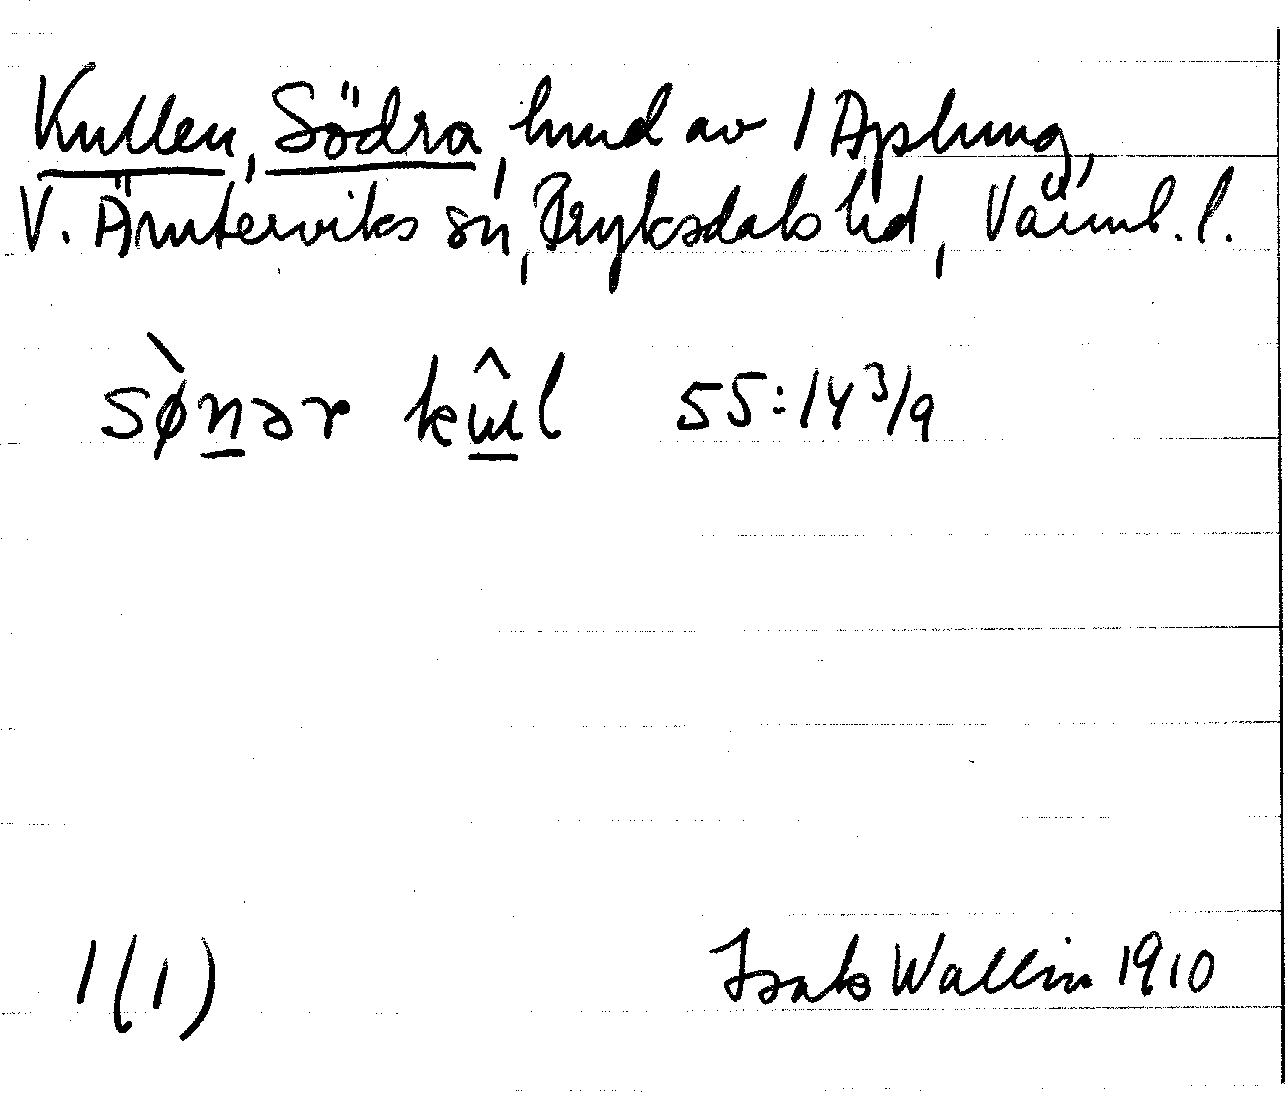 Kullen, Södra, hmd av 1 Aplung,
V. Ämterviks sn, Fryksdals hd, Värml. l.
sø̀n̲ər kɯ̲̂l 55:14 3/9
1(1)
Isak Wallin 1910